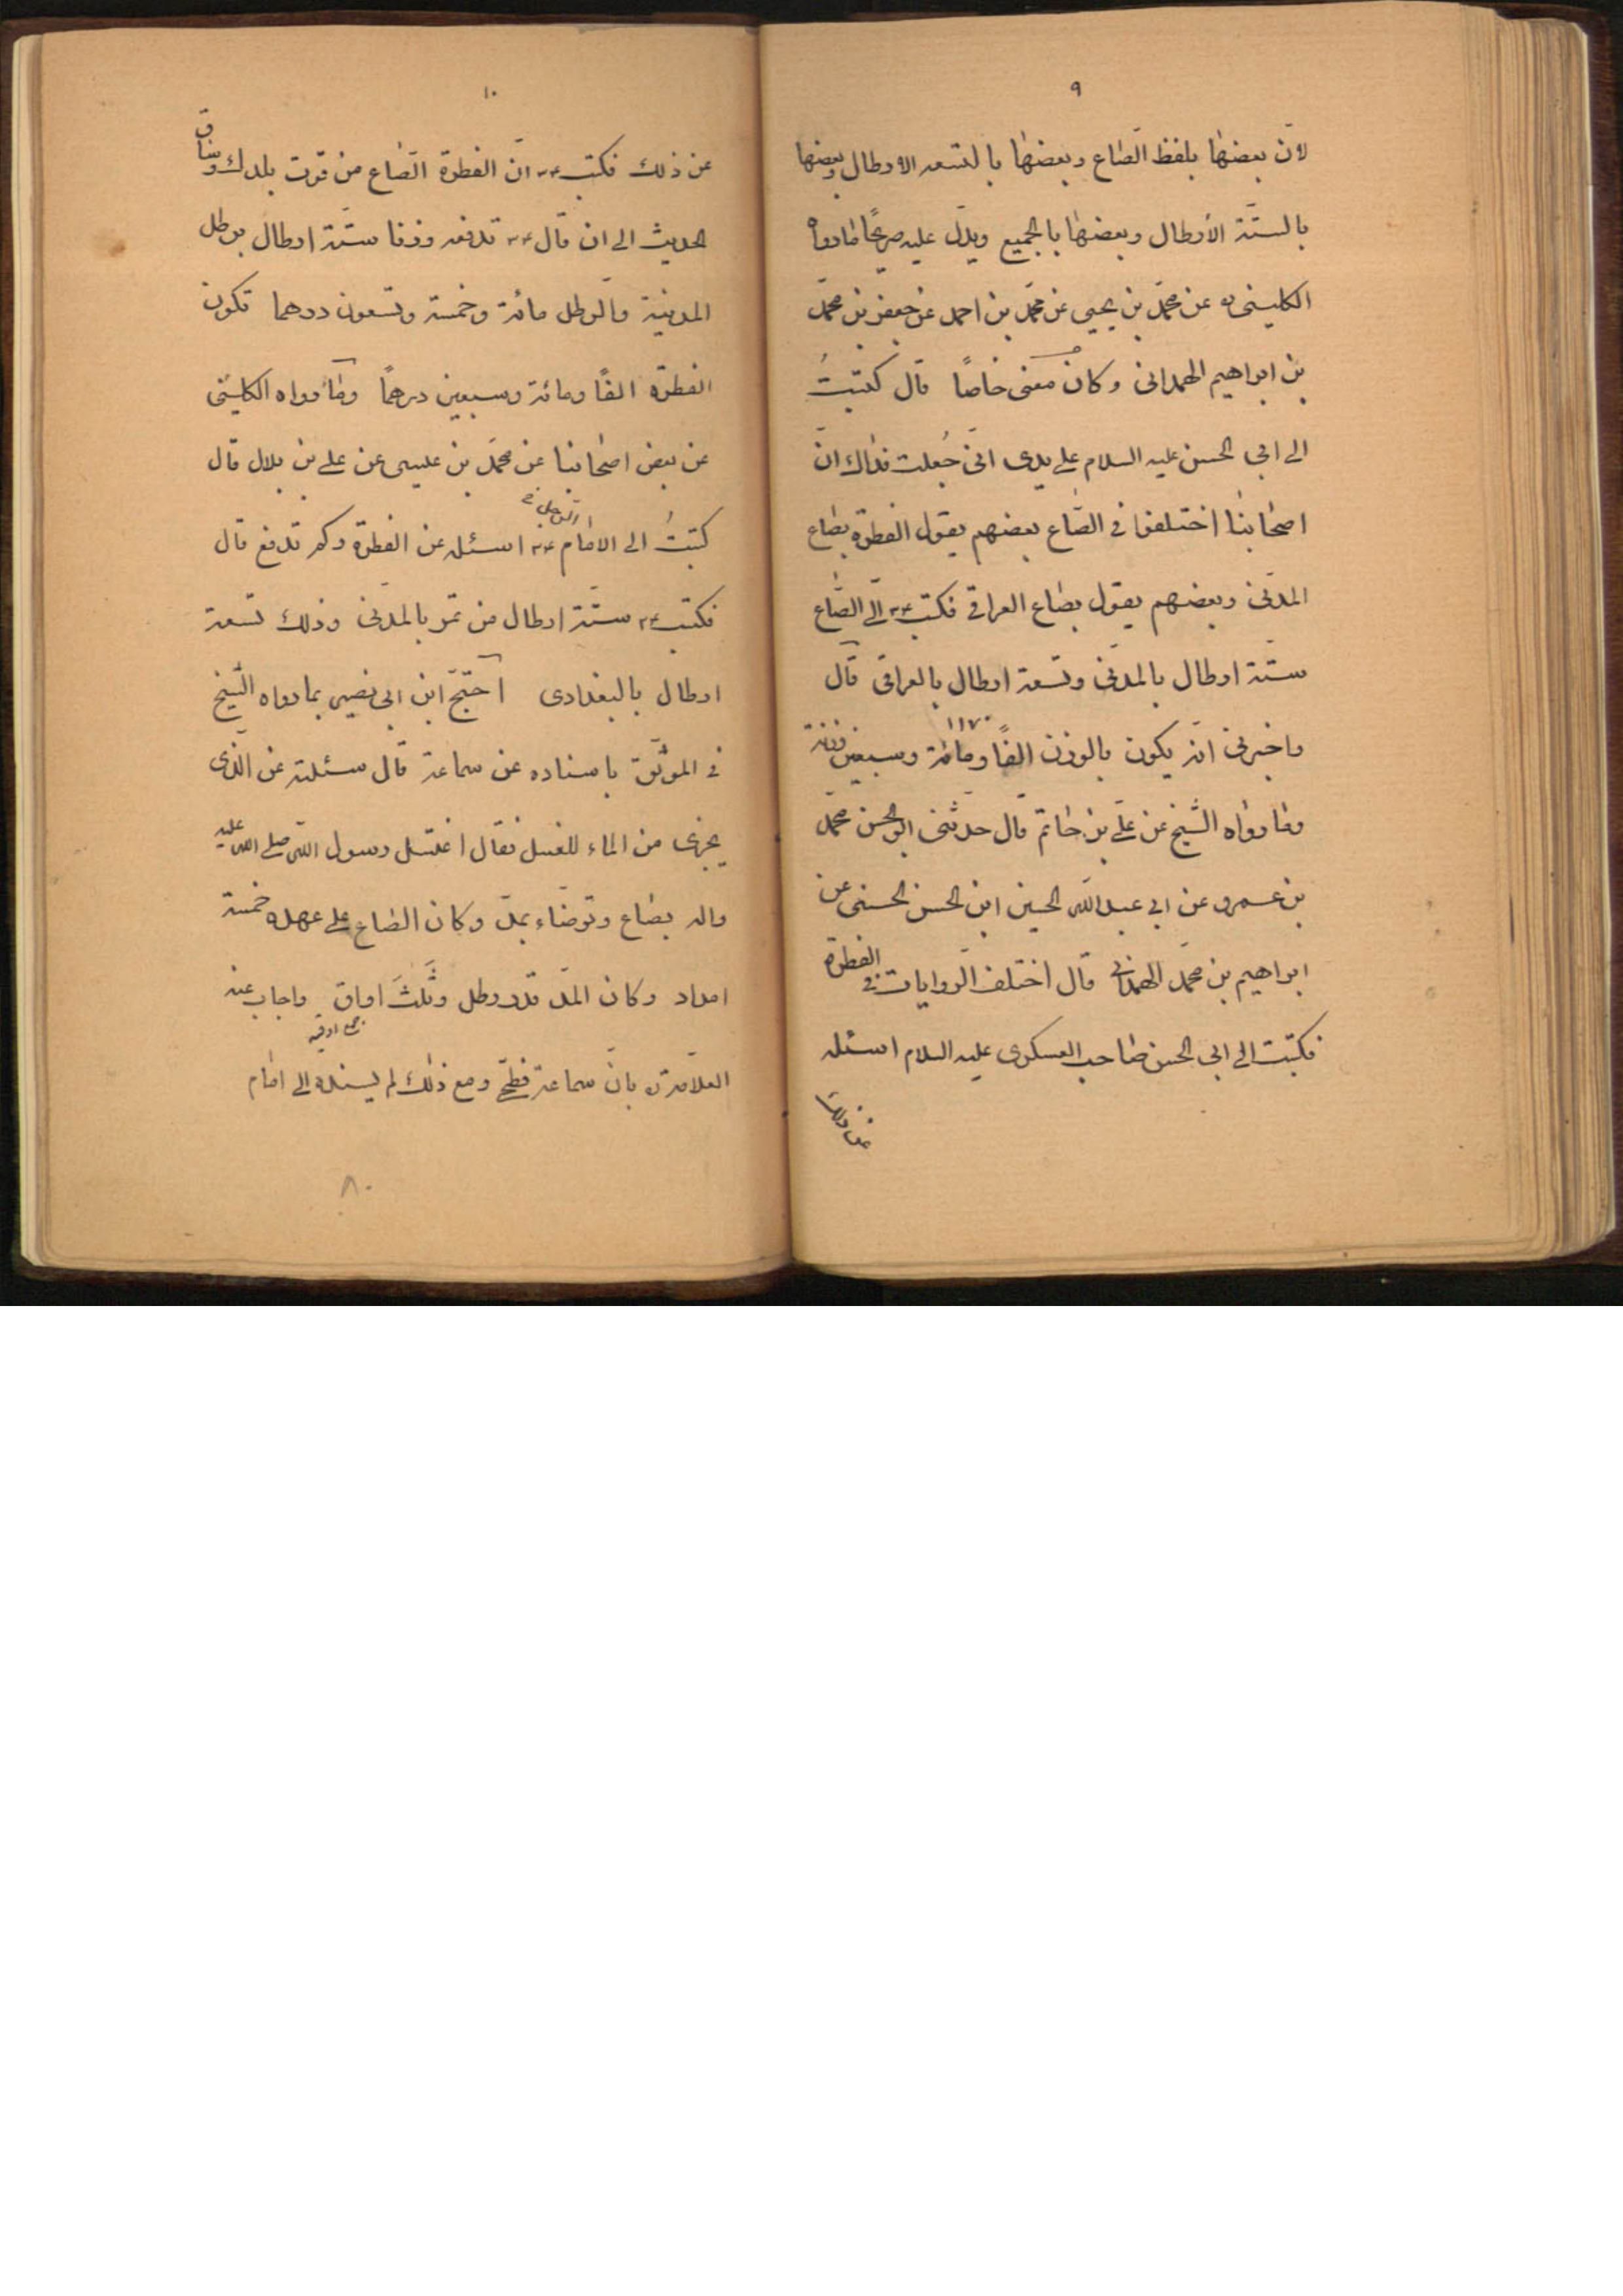 ٩
لانّ بعضها بلفظ الصّاع وبعضها بالتسعه الارطال وبعضها
بالستّة الأرطال وبعضها بالجميع ويدلّ عليه صريحًا مارواه
الكلينى ره عن محمّد بن يحيى عن محمّد بن احمد عن جعفر بن محمّد
بن ابراهيم الهمدانى وكان معنى خاصًا قال كتبتُ
الى ابى الحسن عليه السلام على يدى ابى جُعلت فداك انّ
اصحابنا اختلفوا فى الصّاع بعضهم يقول الفطرة بصاع
المدنى وبعضهم يقول بصاع العراقى فكتب ع الىّ الصّاع
ستّة ارطال بالمدنى وتسعة ارطال بالعراقى قال
واخبرنى انّه يكون بالوزن الفًا ومائة وسبعين وزنة
١١٧٠
وما رواه الشّيخ عن علىّ بن حاتم قال حدّثنى ابو الحسن محمّد
بن عمرو عن ابى عبد الله الحسين ابن الحسن الحسنى عن
ابراهيم بن محمّد الهمدانى قال اختلف الرّوايات فى الفطرة
فكتبت الى ابى الحسن صاحب العسكرى عليه السلام اسئله
عن ذلك
١٠
عن ذلك فكتب ع انّ الفطرة الصّاع من قوت بلدك وساق
الحديث الى ان قال ع تدفعه وزنا ستّة ارطال برطل
المدينة والرطل مائة وخمسة وتسعون درهما تكون
الفطرة الفًا ومائة وسبعين درهمًا وما رواه الكلينى
عن بعض اصحابنا عن محمّد بن عيسى عن على بن بلال قال
كتبتُ الى الامام ع اسئله عن الفطرة وكم تدفع قال
الرّجل خ
فكتب ع ستّة ارطال من تمر بالمدنى وذلك تسعة
ارطال بالبغدادى احتجّ ابن ابى نصير بما رواه الشّيخ
فى الموثّق باسناده عن سماعة قال سئلته عن الّذى
يجزى من الماء للغسل فقال اغتسل رسول الله صلى الله عليه
واله بصاع وتوضّاء بمدّ وكان الصّاع على عهده خمسة
امداد وكان المدّ قدر رطل وثلث اواق واجاب عنه
جمع اوقيه
العلّامة ره بانّ سماعة فطحىّ ومع ذلك لم يسنده الى امام
٨٠